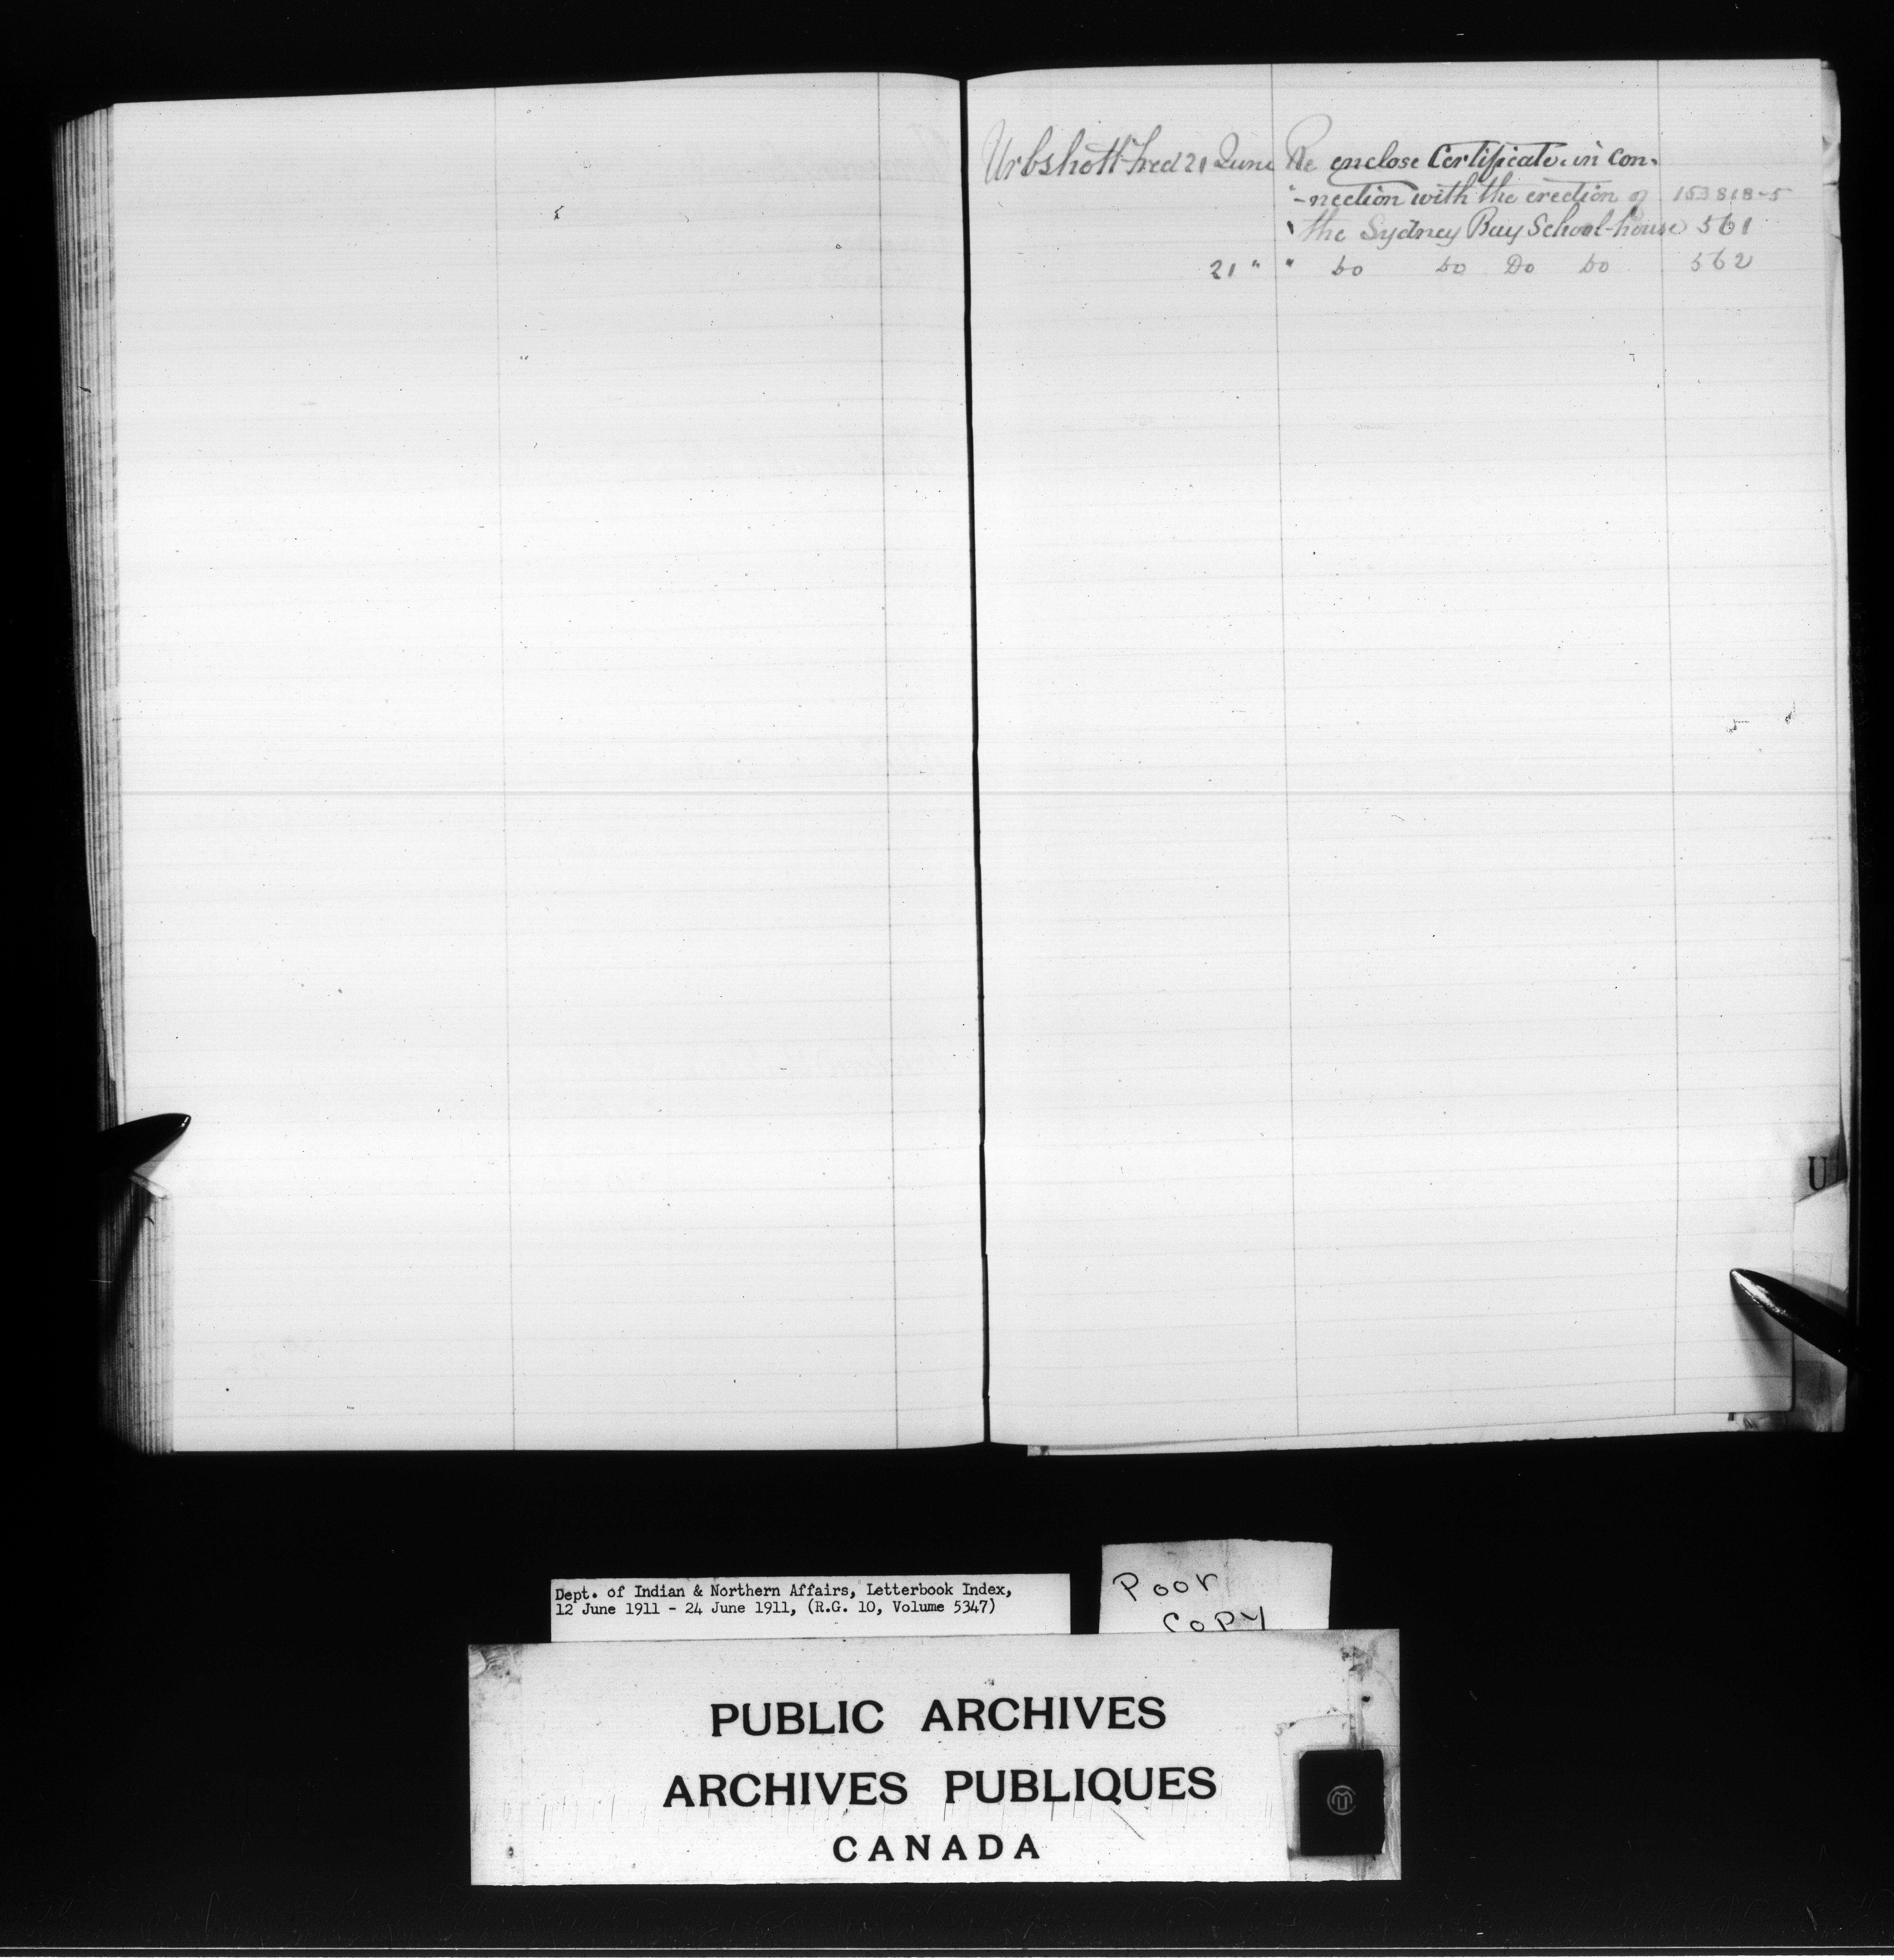 Urbshott Fred 21 June Re enclose Certificate in con-
"-nection with the erection of 153818-5
" the Sydney Bay School-house 561
21 " " Do Do Do Do 562
U
Dept. of Indian & Northern Affairs, Letterbook Index,
12 June 1911 - 24 June 1911, (R.G. 10, Volume 5347)
Poor
COPY
PUBLIC ARCHIVES
ARCHIVES PUBLIQUES
CANADA